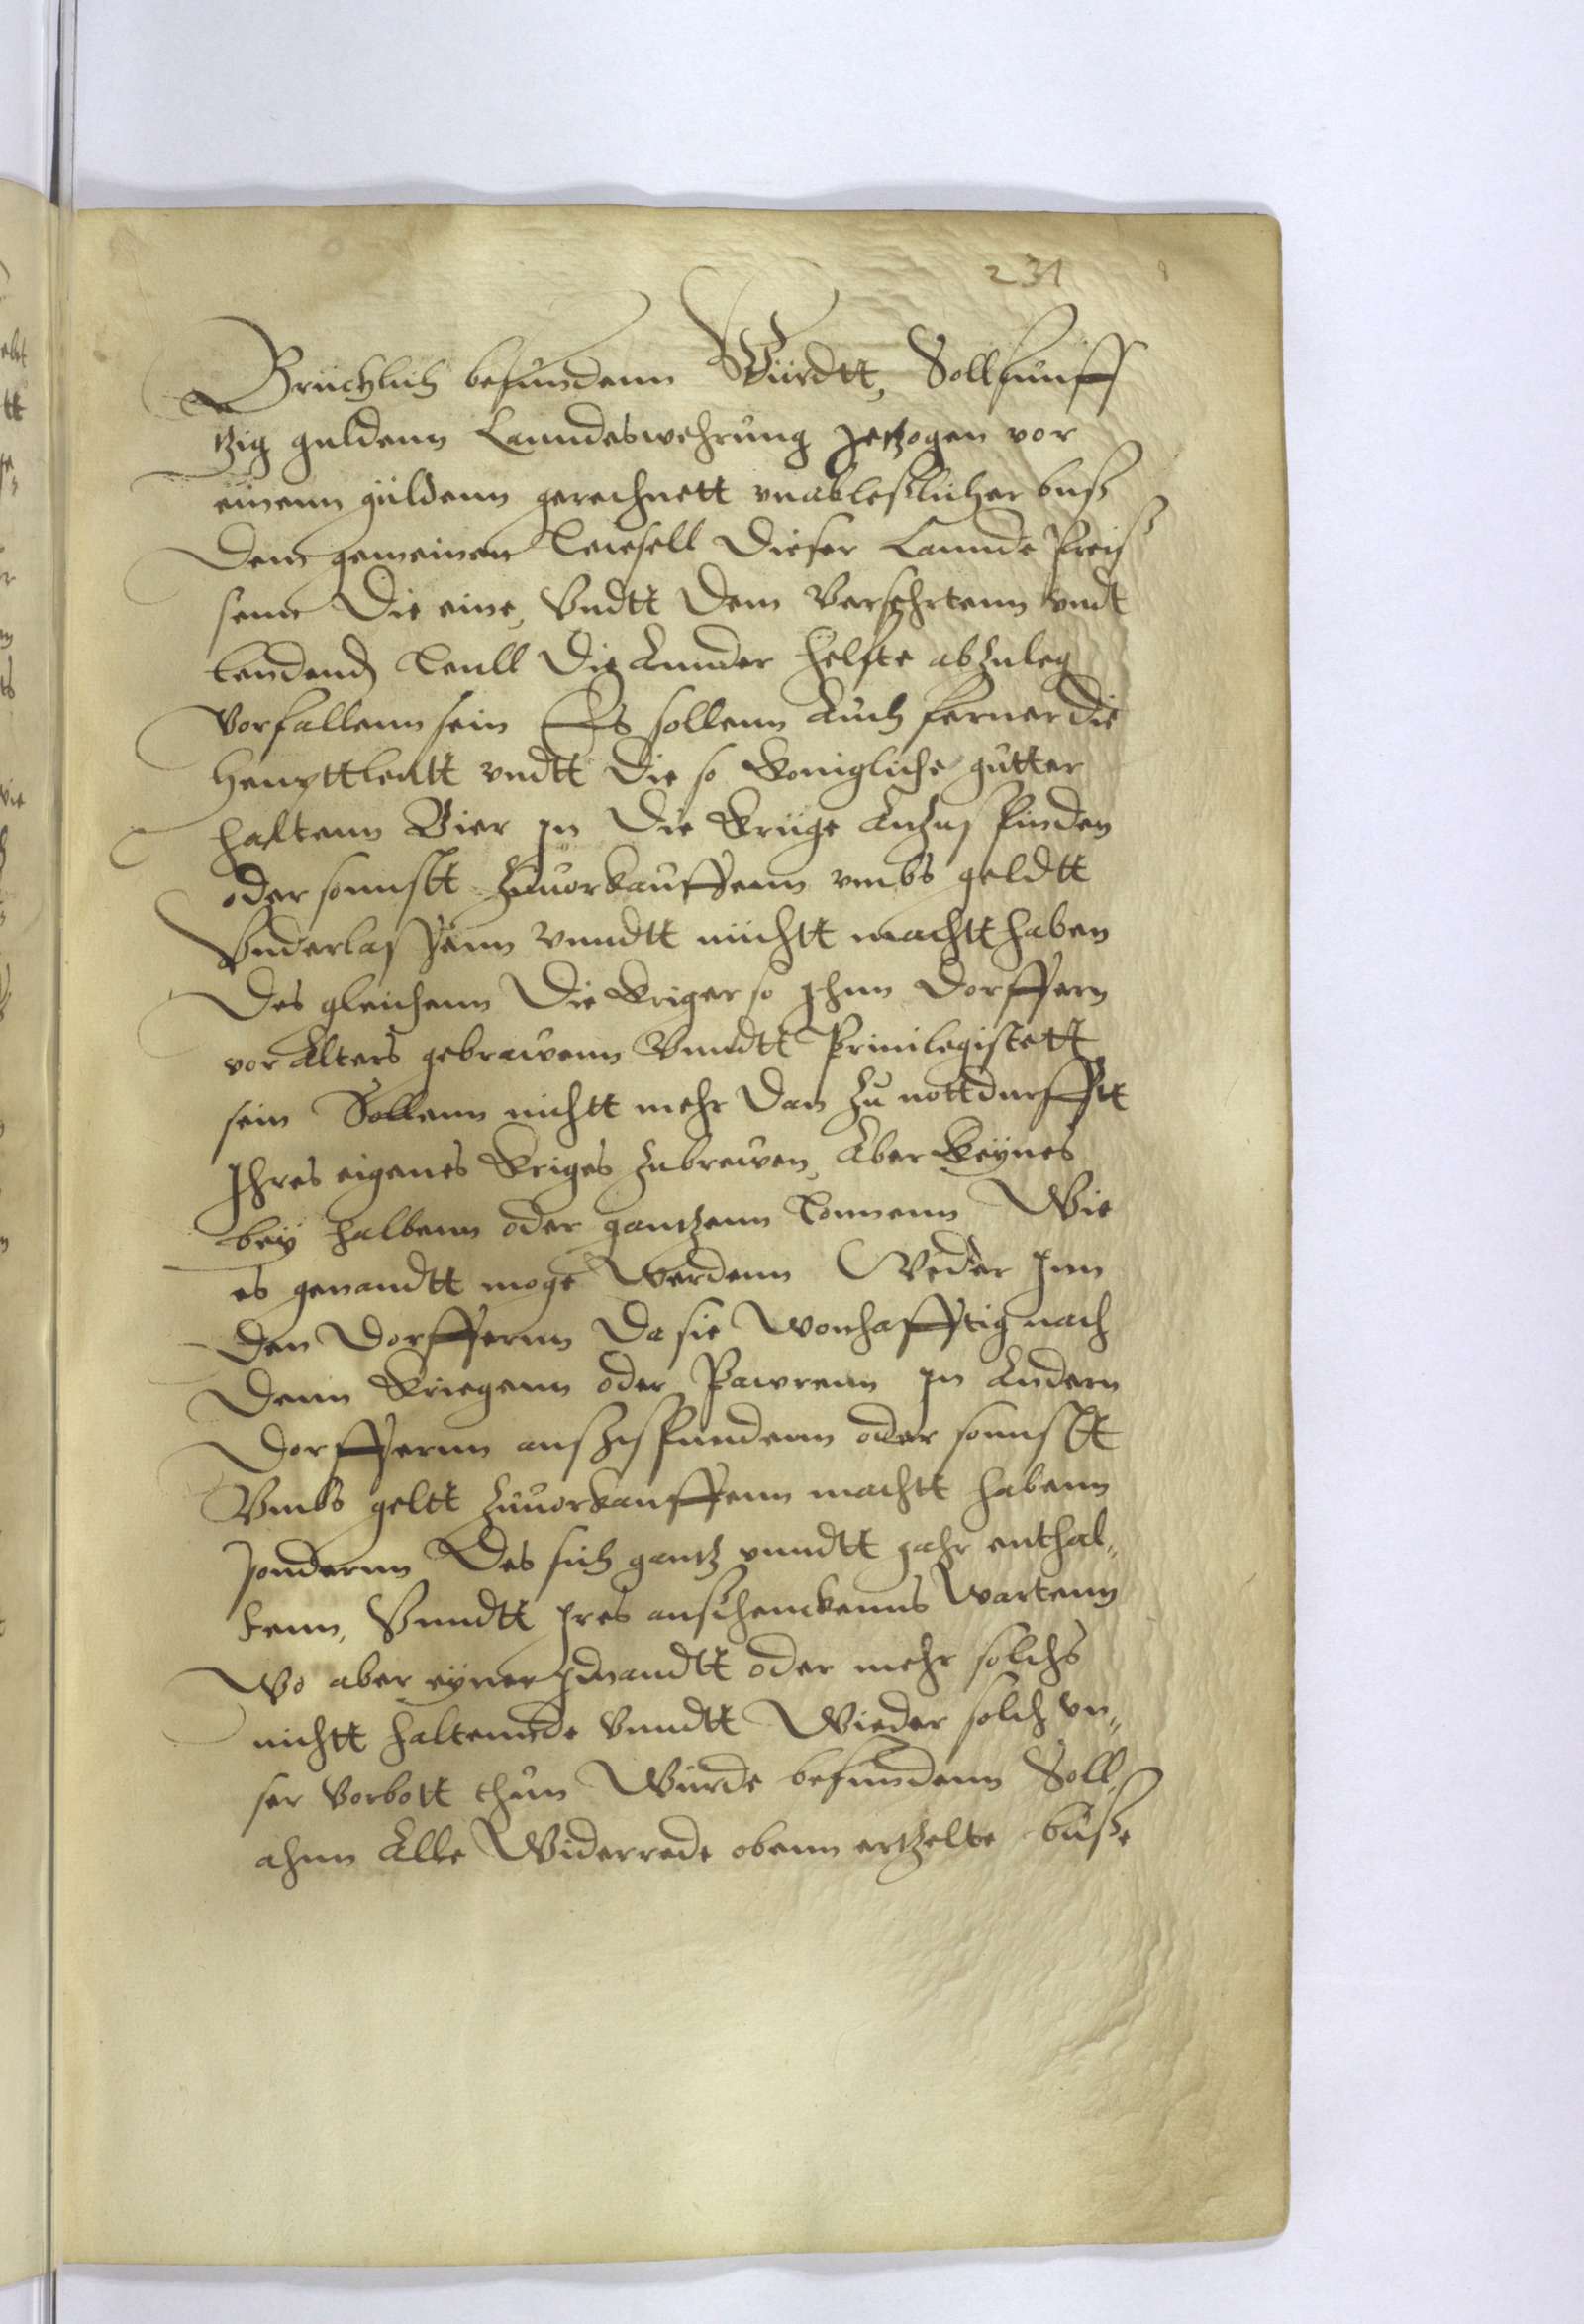 231
Brüchlich befundenn Würdtt, Soll funff
tzig guldenn Lanndeswehrung
einenn güldenn gerechnett unableßlicher buß
Dem gemeinen Dieser Lannde Preus
senn Die eine, Vndtt Dem Versehrtenn vndt
Teull Die Ander helfte abzuleg
Vorfallenn sein Es sollenn Auch ferner die
Heupttleutt vndtt Die so Konigliche gütter
haltenn Bier In Die Krüge
oder sonnstt Zuuorkauffenn vmbs geldtt
Vnderlassenn Vnndtt nichtt machtt haben
Des gleichenn Die Kriger so Ihnn Dorffern
vor Alters gebrawenn Vnndtt Priuilegirtett
sein Sollenn nichtt mehr Dan Zu nottdurfftt
Ihres eigenes Kriges Zubrewen, Aber Keynes
bey halbenn oder gantzenn Tonnenn Wie
es genandtt moge Werdenn Weder Inn
Den Dorffernn Da sie Wonhafftig nach
Denn Kriegenn oder Pawrenn In Andern
Dorffernn oder sonnstt
Vmbs geltt Zuuorkauffenn machtt habenn
Sondernn Des sich gantz vnndtt gahr enthal„
tenn, Vnndtt Ires außschenckenns Wartenn
Wo aber eyner Imandtt oder mehr solchs
nichtt haltennde Vnndtt Wieder solch vn„
ser Vorbott thun Würde befundenn Soll
ahnn Alle Widerrede obenn ertzelte büße